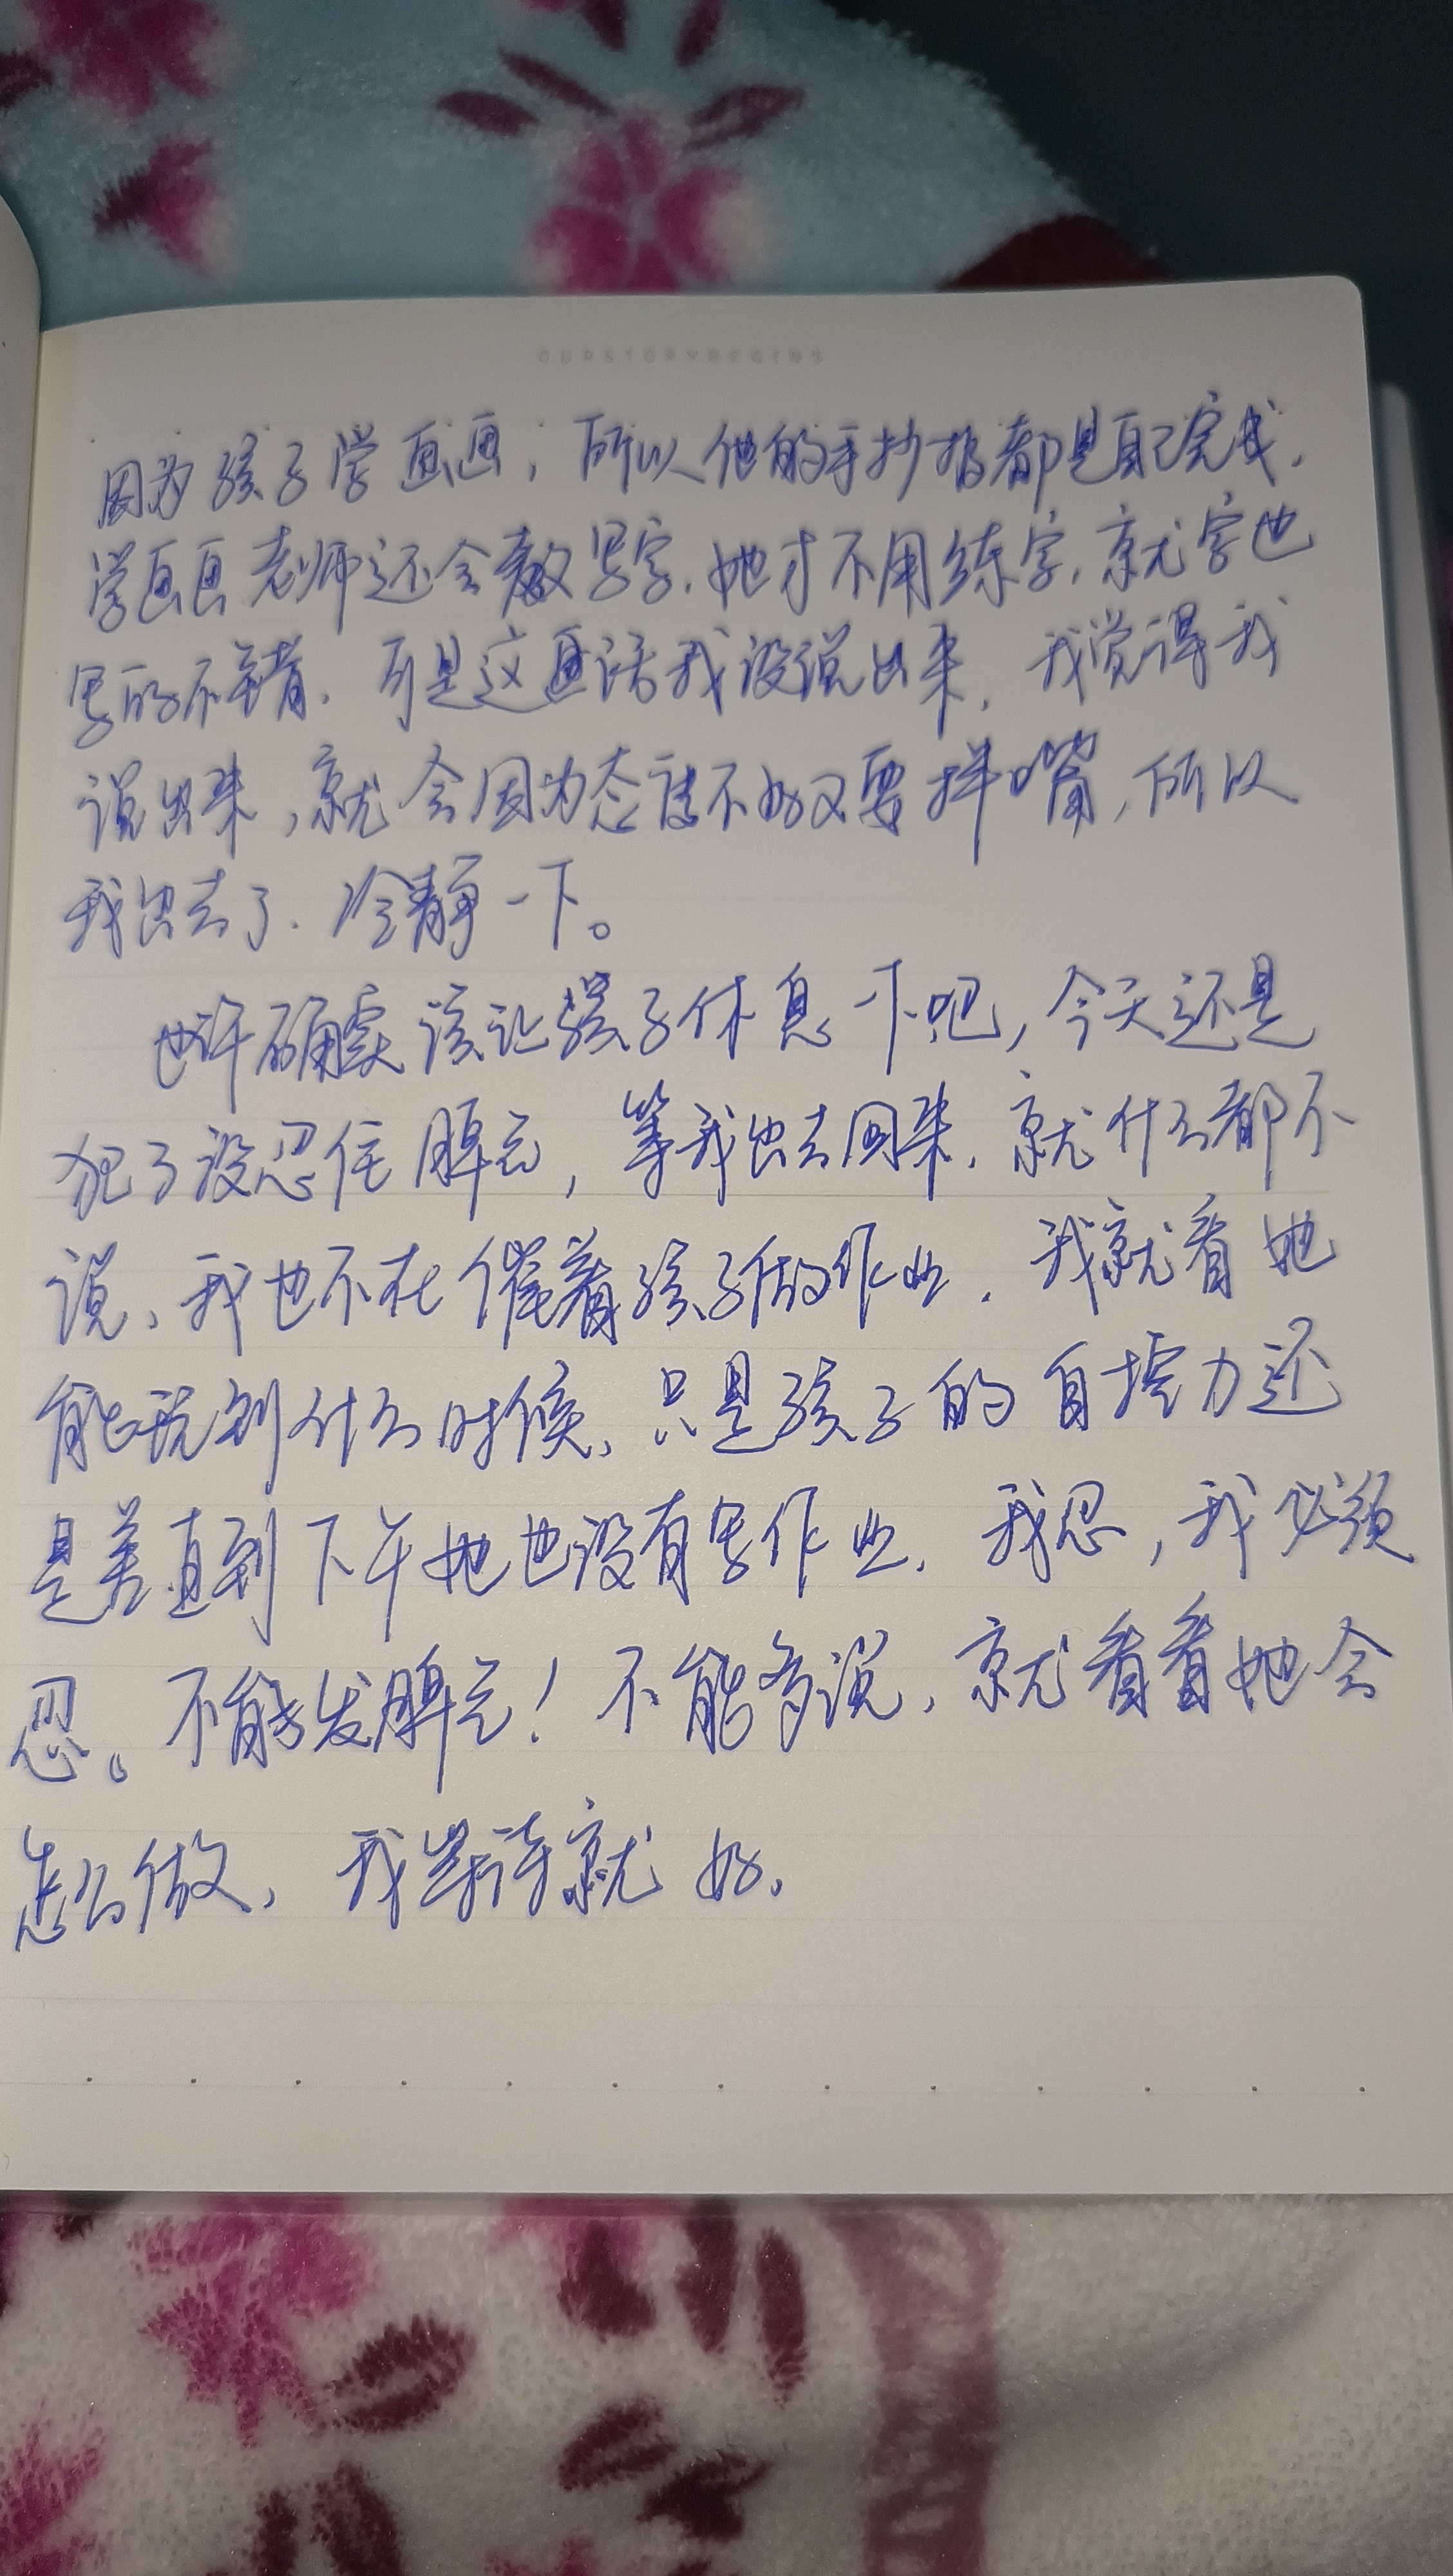 OURSTORYBEGINS
因为孩子学画画，所以他的手抄报都是自己完成.
学画画老师还会教写字.她才不用练字.就字也
写的不错.可是这通话我没说出来,我觉得我
说出来,就会因为态度不好又要拌嘴,所以
我出去了.冷静一下。
也许确实该让孩子休息一下吧,今天还是
犯了没忍住脾气,等我出去回来.就什么都不
说、我也不在催着孩子做作业.我就看她
能玩到什么时候、只是孩子的自控力还
是差直到下午她也没有写作业.我忍,我必须
忍。不能发脾气!不能多说、就看看她会
怎么做、我等待就好.